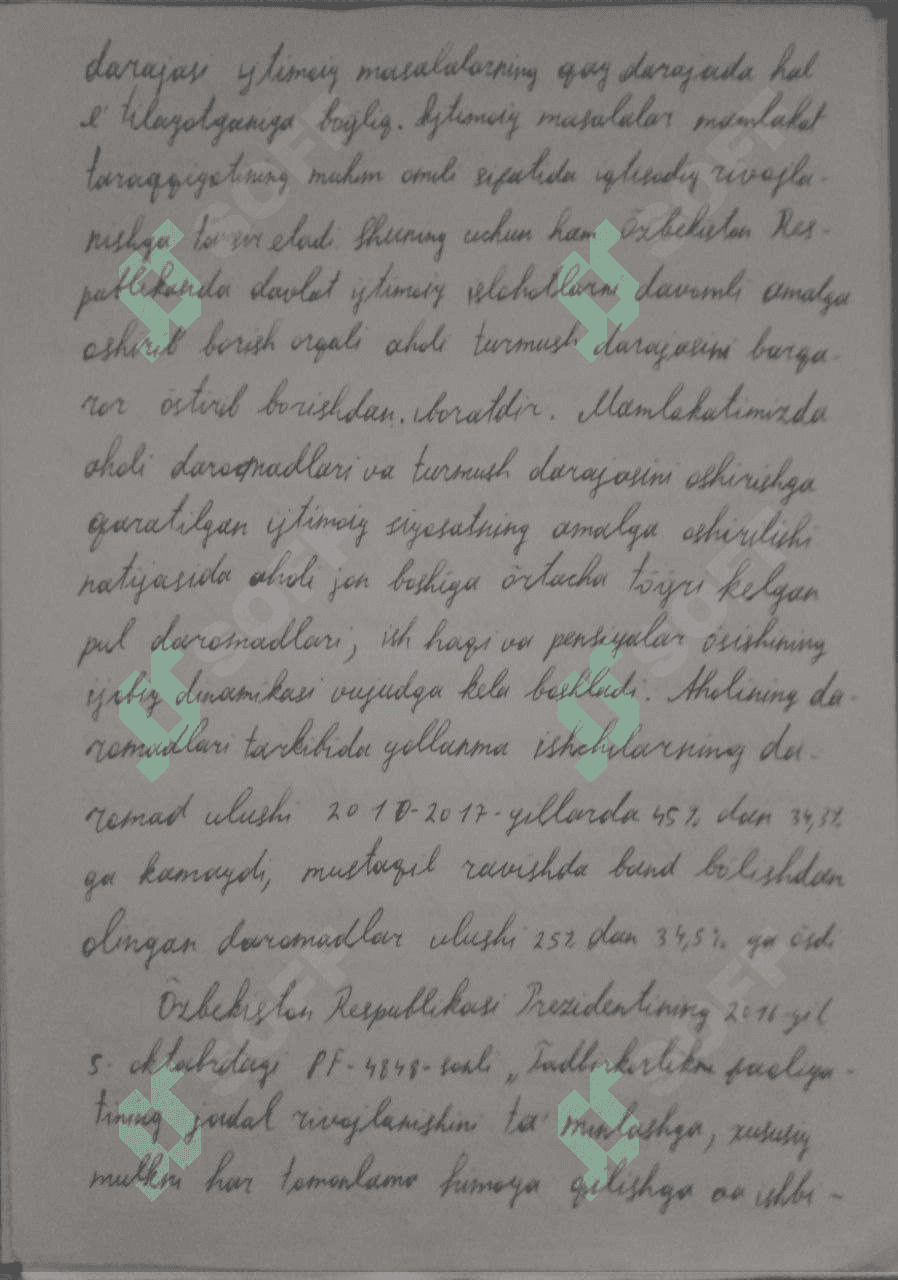 darajasi ijtimoiy masalalarning qay darajada hal
e'tilayotganiga bog'liq. Ijtimoiy masalalar mamlakat
taraqqiyotining muhim omili sifatida iqtisodiy rivojla-
nishga ta'sir etadi. Shuning uchun ham Õzbekiston Res-
publikasida davlat ijtimoiy islohotlarni davomli amalga
oshirib borish orqali aholi turmush darajasini barqa-
ror õstirib borishdan iboratdir. Mamlakatimizda
aholi daromadlari va turmush darajasini oshirishga
qaratilgan ijtimoiy siyosatning amalga oshirilishi
natijasida aholi jon boshiga õrtacha tõg'ri kelgan
pul daromadlari, ish haqi va pensiyalar õsishining
ijobiy dinamikasi vujudga kela boshladi. Aholining da-
romadlari tarkibida yollanma ishchilarning da-
romad ulushi 2010-2017-yillarda 45% dan 34,3%
ga kamaydi, mustaqil ravishda band bõlishdan
olingan daromadlar ulushi 25% dan 34,5% ga õsdi
Õzbekiston Respublikasi Prezidentining 2016-yil
5-oktabrdagi PF-4848-sonli „Tadbirkorlikni faoliya-
tining jadal rivojlanishini ta'minlashga, xususiy
mulkni har tomonlama himoya qilishga va ishbi-
SOFF
SOFF
SOFF
SOFF
SOFF
SOFF